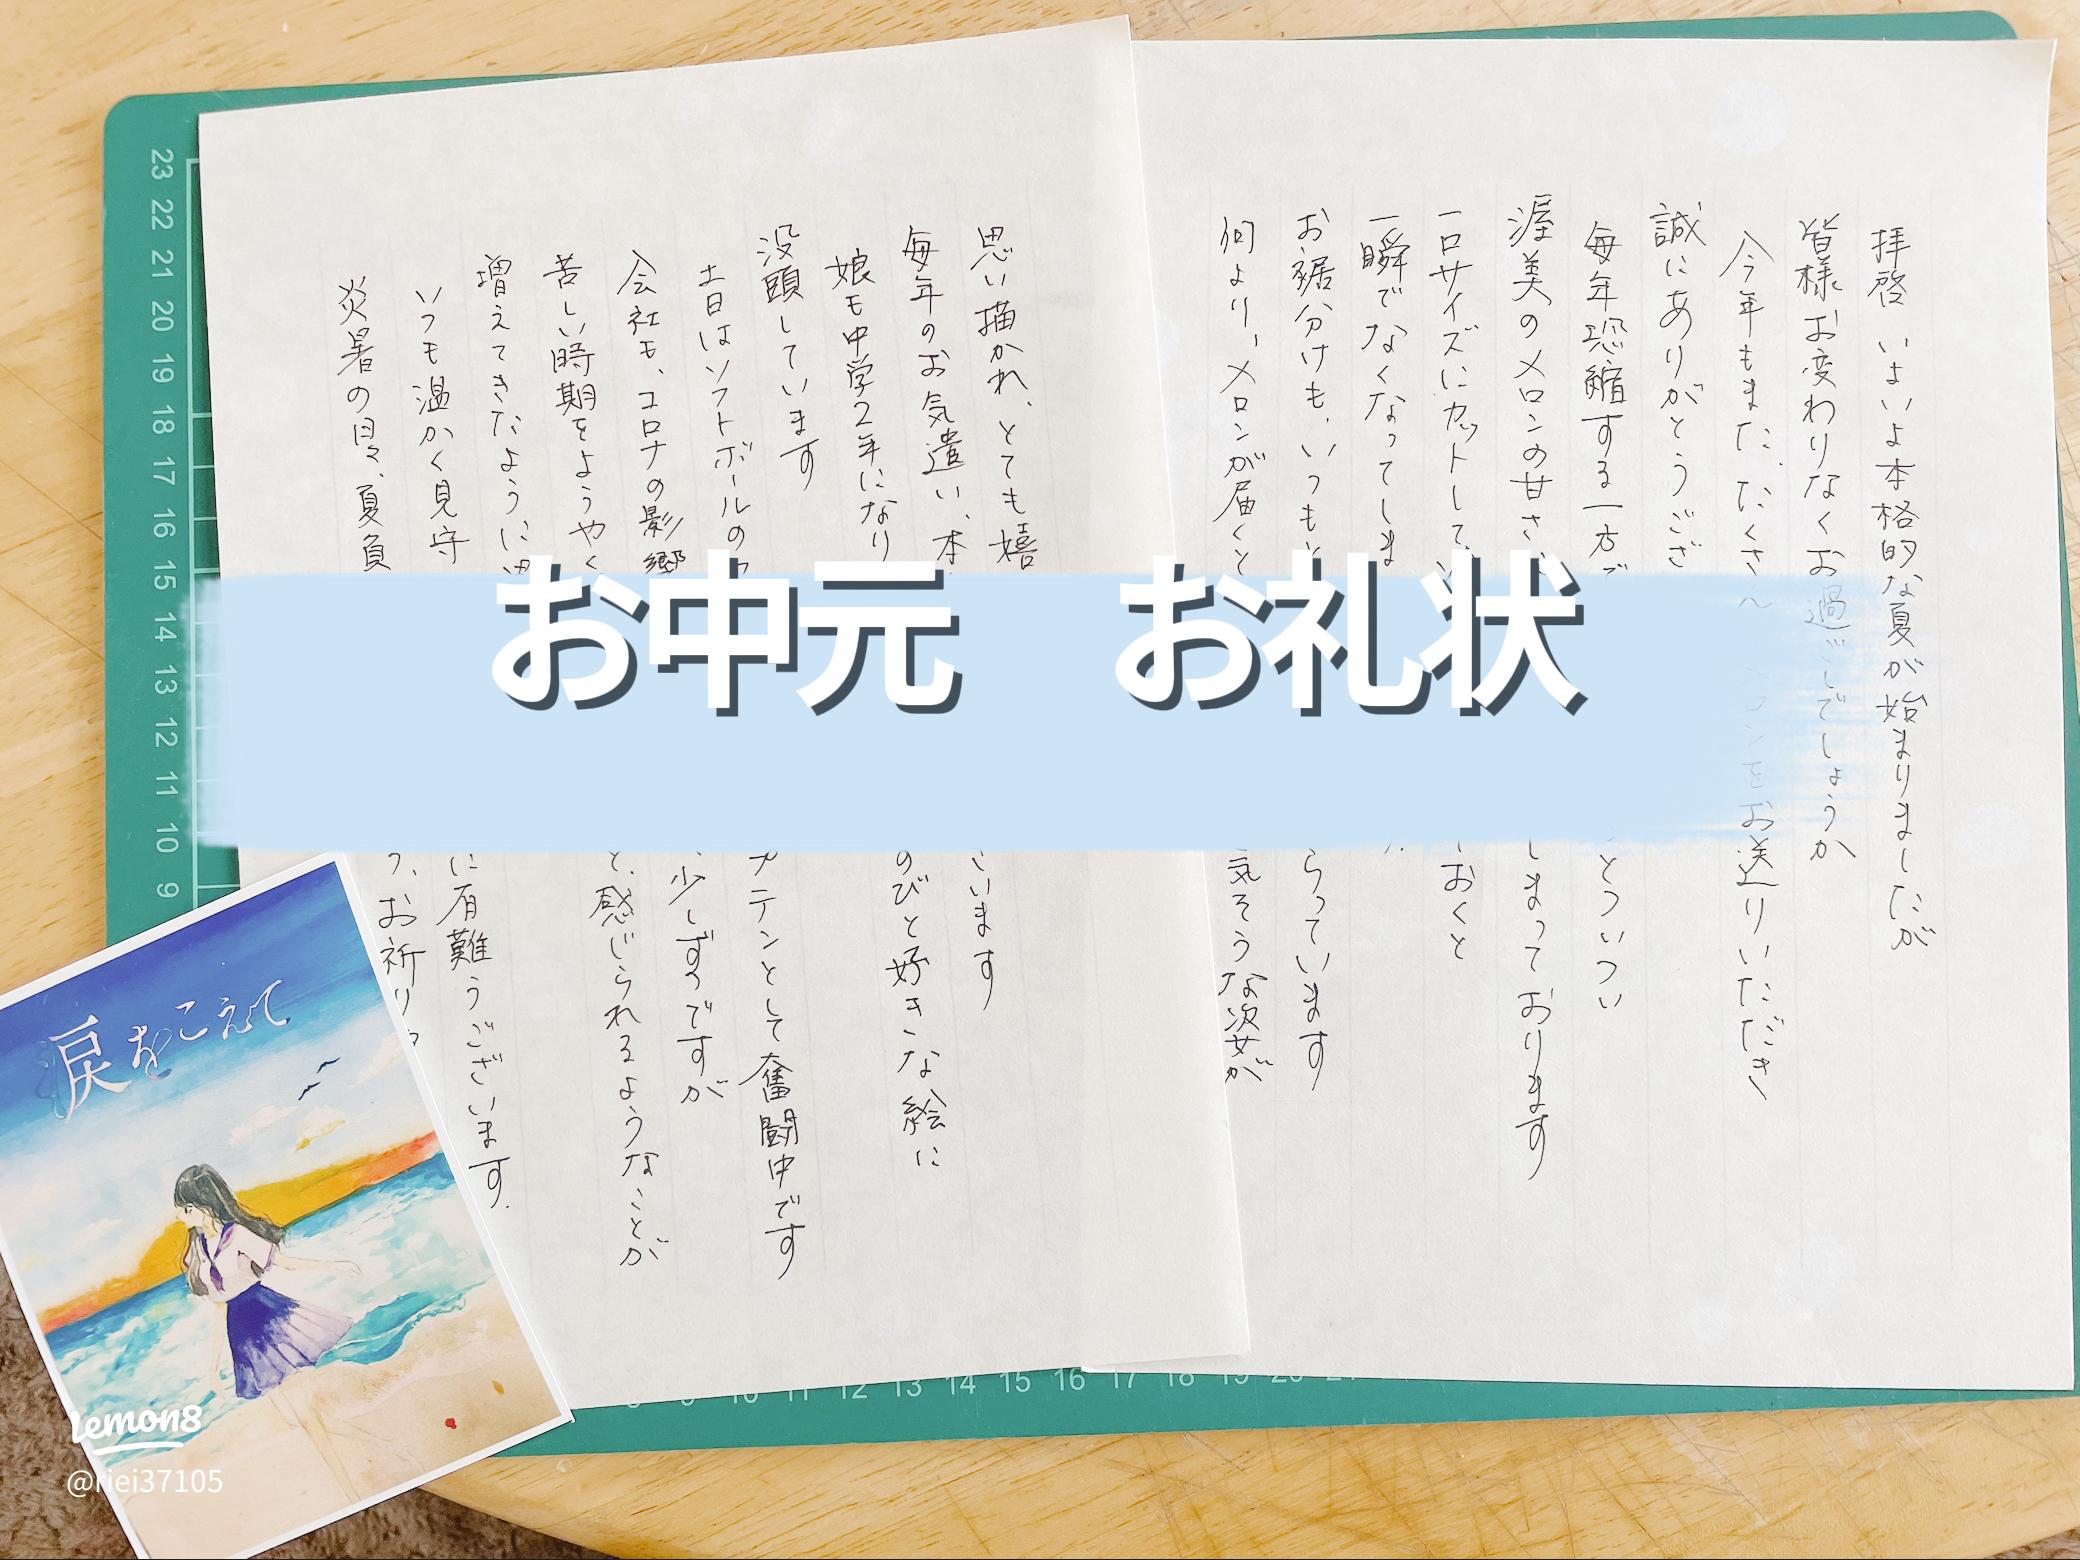 お中元 お礼状
拝啓 いよいよ本格的な夏が始まりましたが
皆様お変わりなくお過ごしでしょうか
今年もまた、たくさん メロンをお送りいただき
誠にありがとうござ
毎年恐縮する一方で とついつい
渥美のメロンの甘さ しまっております
一口サイズにカットして おくと
一瞬でなくなってしま
お裾分けも、いつも らっています
何より、メロンが届くと 気そうな次女が
思い描かれ、とても嬉 います
毎年のお気遣い、本
娘も中学2年になり のびと好きな絵に
没頭しています
土日はソフトボールの カテンとして奮闘中です
会社も、コロナの影響 、少しずつですが
苦しい時期をようやく と、感じられるようなことが
増えてきたように
いつも温かく見守 に有難うございます。
炎暑の日々、夏負 う、お祈り
涙をこえて
23
22
21
20
19
18
17
16
15
14
13
12
11
10
9
10 11 12 13 14 15 16 17 18 19 20 21
Lemon8
@riei37105